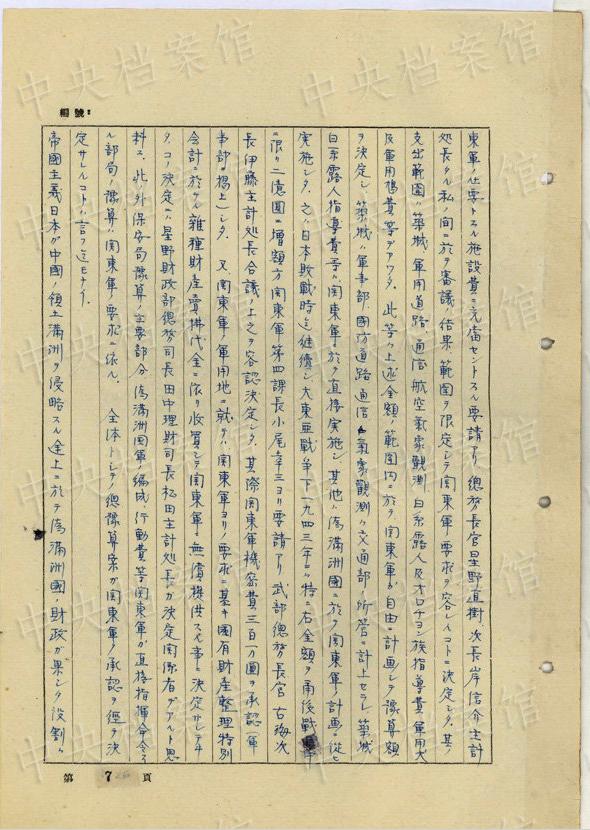 中央档案馆
編號:
東軍ノ必要トスル施設費ニ充當セントスル要請アリ、總務長官星野直樹、次長岸信介主計
処長タル私ノ間ニ於テ審議ノ結果範囲ヲ限定シテ関東軍ノ要求ヲ容レルコトニ決定シタ。其ノ
支出範囲ハ築城、軍用道路、通信、航空気象観測、白系露人及オロチョン族指導費、軍用犬
及軍用鳩費等デアッタ。此等ハ上述金額ノ範囲内ニ於テ関東軍ガ自由ニ計画シテ豫算額
ヲ決定シ、築城ハ軍事部、国防道路、通信、気象観測ハ交通部ノ所管ニ計上セラレ、築城
白系露人指導費等ハ関東軍ニ於テ直接実施シ、其他ハ偽満洲國ニ於テ関東軍ノ計画ニ従ヒ
実施シタ。之ハ日本敗戦時迄継續シ、大東亜戦争下一九四三年ニハ特ニ右金額ヲ
ニ限リ二億圓ニ増額方関東軍第四課長小尾ヨリ要請アリ、武部總務長官、古海次
長、伊藤主計処長合議ノ上之ヲ容認決定シタ。其際関東軍機密費三百万圓ヲ承認シ軍
事部ニ計上シタ。又、関東軍ノ軍用地ニ就テハ、関東軍ヨリノ要求ニ基キ國有財産整理特別
会計ニ於テハ雑種財産賣拂代金ニ依リ收買シテ関東軍ニ無償提供スル事ニ決定サレテヰ
タ。コノ決定ハ、星野財政部總務司長、田中理財司長、松田主計処長ガ決定関係者デアルト思
料ス。此ノ外保安局豫算ノ主要部分、偽満洲国軍ノ編成、行動費等関東軍ガ直接指揮命令ス
ル部局ノ豫算ハ関東軍ノ要求ニ依ル。全体トシテノ總豫算案ガ関東軍ノ承認ヲ経テ決
定サレルコトハ言フ迄モナイ。
帝國主義日本ガ中國ノ領土満洲ヲ侵略スル途上ニ於テ偽満洲國ノ財政ガ果シタ役割ハ
第 7 頁